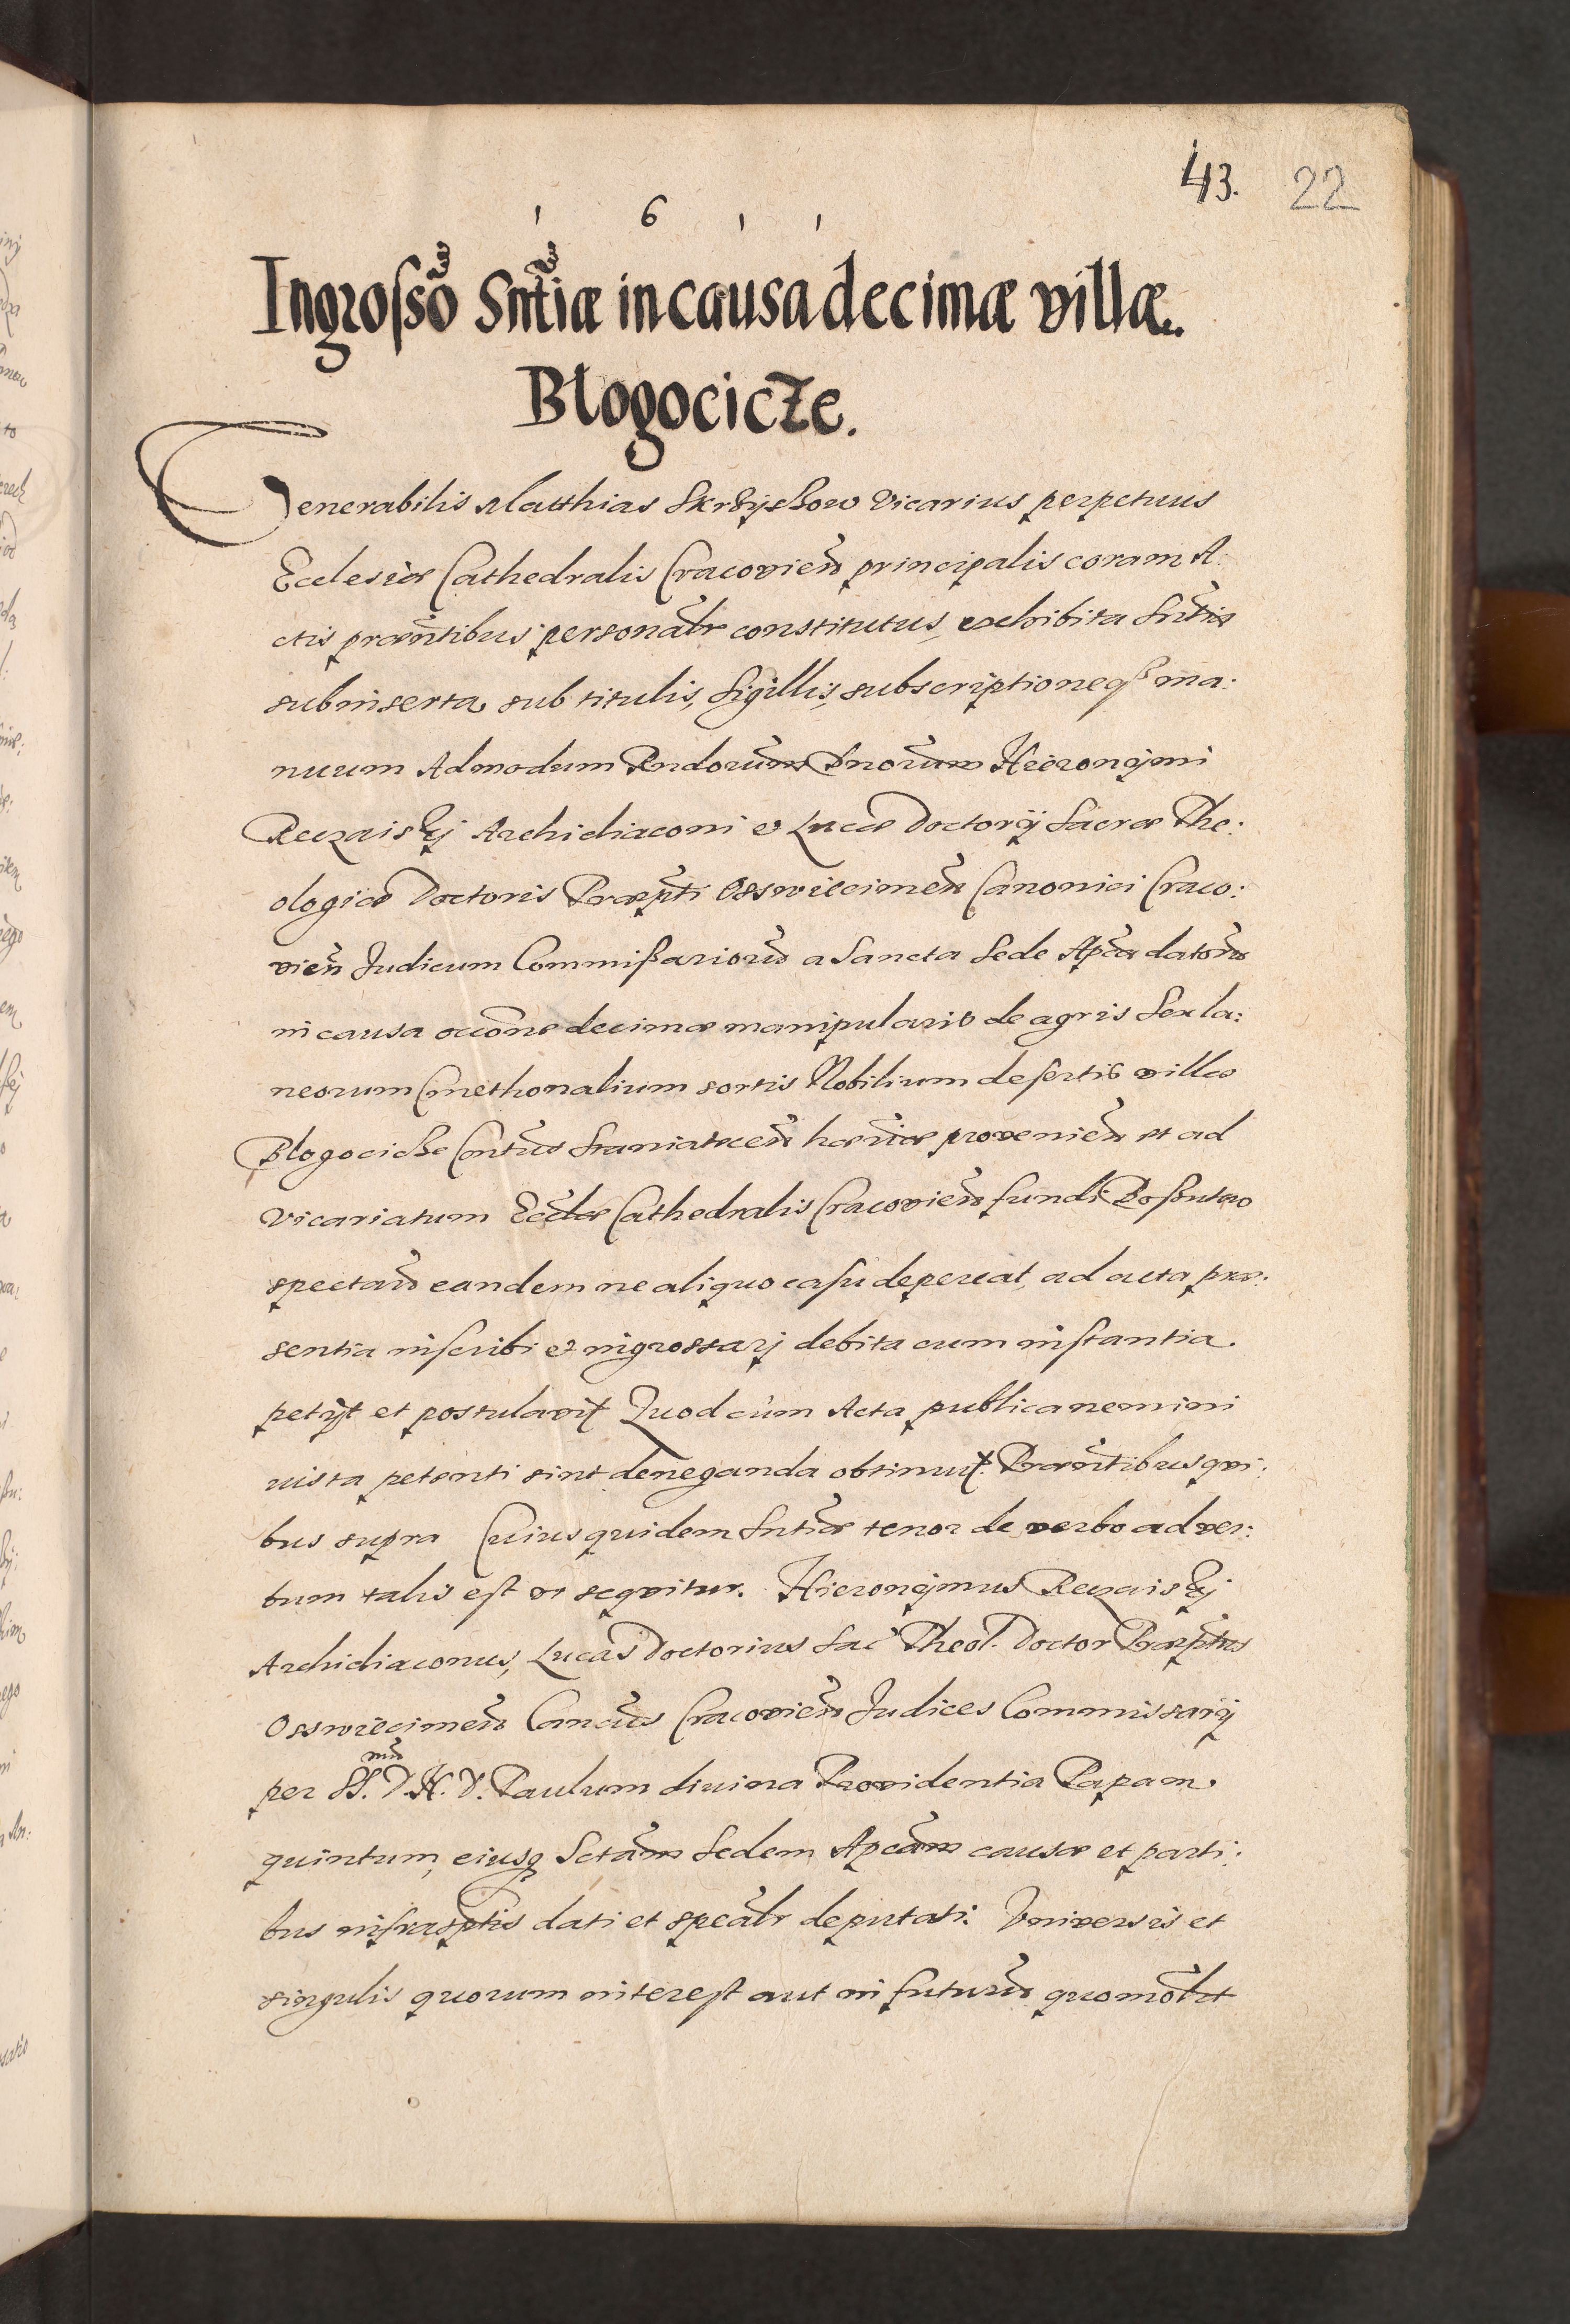 43. 22
1 6 1 1
Ingrosso Sntiæ in causa decimæ villæ.
Blogocicze.
Venerabilis Matthias Skrzyszow Vicarius perpetuus
Ecclesiæ Cathedralis Cracovien principalis coram A:
ctis præntibus personalr constitutus, exhibita Sntia
subinserta sub titulis, Sigillis, subscriptioneq₃ ma:
nuum Admodum Rndorum Dnorum Hieronymi
Reczaisky Archidiaconi et Lucæ Doctorij Sacræ The:
ologiæ Doctoris Præpti Osswiecimen Canonici Craco:
vien Judicum Commißariorũ a Sancta Sede Aplca datorũ
in causa occõne decimæ manipularis de agris Sex la:
neorum Cmethonalium sortis Nobilium desertis villæ
Blogocicze Cntus Staniatecen hæriæ provenien et ad
Vicariatum Eccliæ Cathedralis Cracovien fundi
spectan eandem ne aliquo casu depereat, ad acta præ:
sentia inscribi et ingrossarj debita cum instantia.
petijt et postulavit Quod cùm Acta publica nemini
iusta petenti sint deneganda obtinuit. Præntibus qui:
bus supra Cuius quidem Sntiæ tenor de verbo ad ver:
bum talis est ut sequitur. Hieronymus Reczaisky
Archidiaconus, Lucas Doctorius Sac Theol. Doctor Præptus
Osswiecimen Cancus Cracovien Judices Commissarij
per SS.mũ D. N. D. Paulum divina Providentia Papam
quintum, eiusq₃ Sctam Sedem Apcam causæ et parti:
bus infrasptis dati et spealr deputati. Vniversis et
singulis quorum interest aut in futurũ quomolt